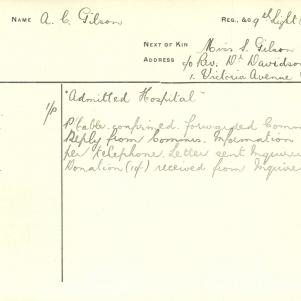 NAME A. C. Gilson REG. &c 9th Light
NEXT OF KIN Miss S. Gilson
ADDRESS c/o Rev. Dr Davidson
1. Victoria Avenue
"Admitted Hospital"
1/P
P table confirmed. forwarded Commns
Reply from Commns. Information
per telephone. Letter sent Inquirer
Donation (1/-) received from Inquirer